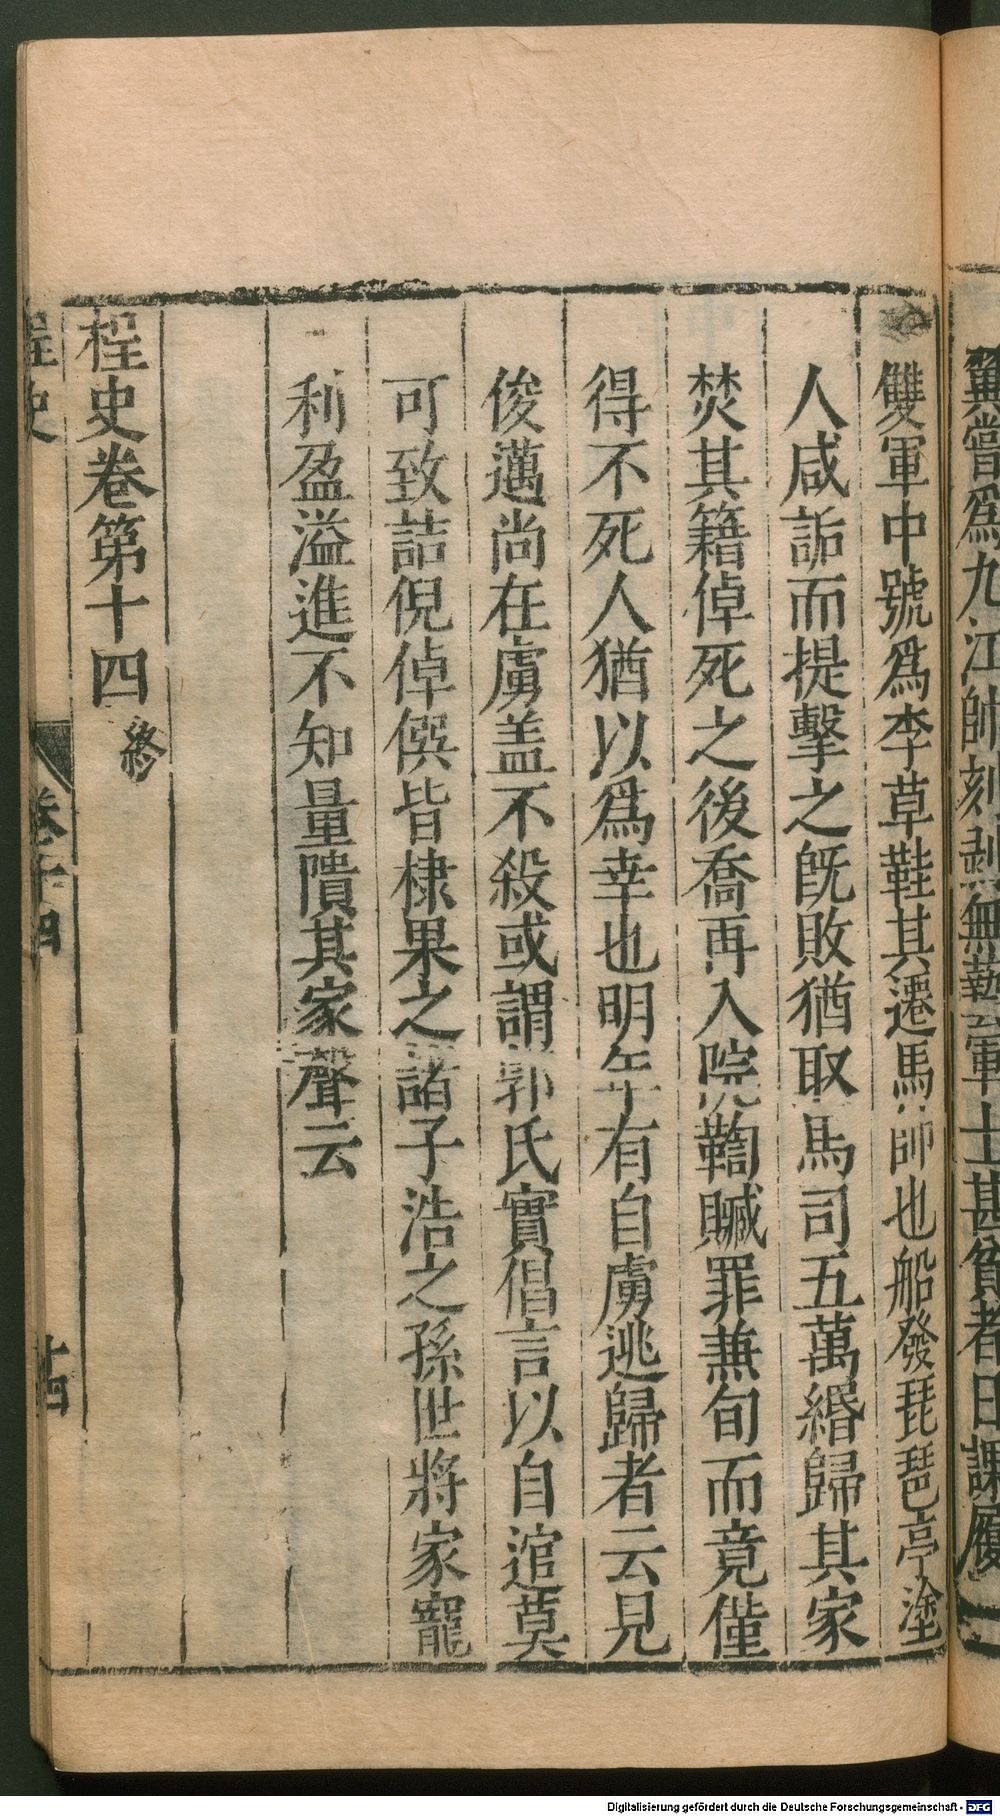 翼嘗爲九江帥刻剥無藝軍士甚貧者日課屨
雙軍中號爲李草鞋其遷馬帥也船發琵琶亭塗
人咸詬而提擊之旣敗猶取馬司五萬緡歸其家
焚其籍倬死之後喬再入院鞫贓罪兼旬而竟僅
得不死人猶以爲幸也明年有自虜逃歸者云見
俊邁尚在虜盖不殺或謂郭氏實倡言以自逭莫
可致詰倪倬僎皆棣果之諸子浩之孫世將家寵
利盈溢進不知量隤其家聲云
桯史卷第十四終
桯史
卷十四
十四
Digitalisierung gefördert durch die Deutsche Forschungsgemeinschaft - DFG